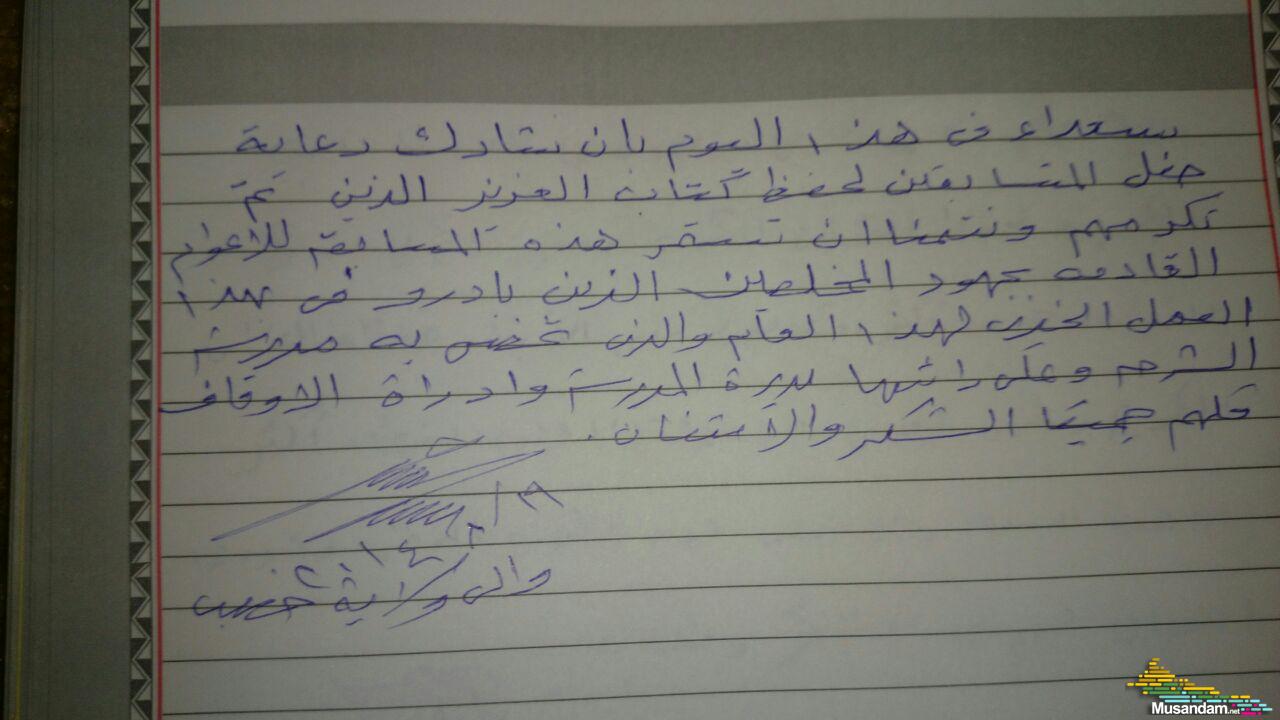 سعداء في هذا اليوم بان نشارك رعاية
حفل المتسابقين لحفظ كتاب العزيز الذين تم
تكريمهم ونتمنا ان تستمر هذه المسابقة للأعوام
القادمه بجهود المخلصين الذين بادرو في هذا
العمل الخيري لهذا العام والذي تخص به مدرسة
الشرجه وعلى رائسها مديرة المدرسة وادراة الاوقاف
فلهم جميعًا الشكر والأمتنان.
والي ولاية خصب
Musandam.net